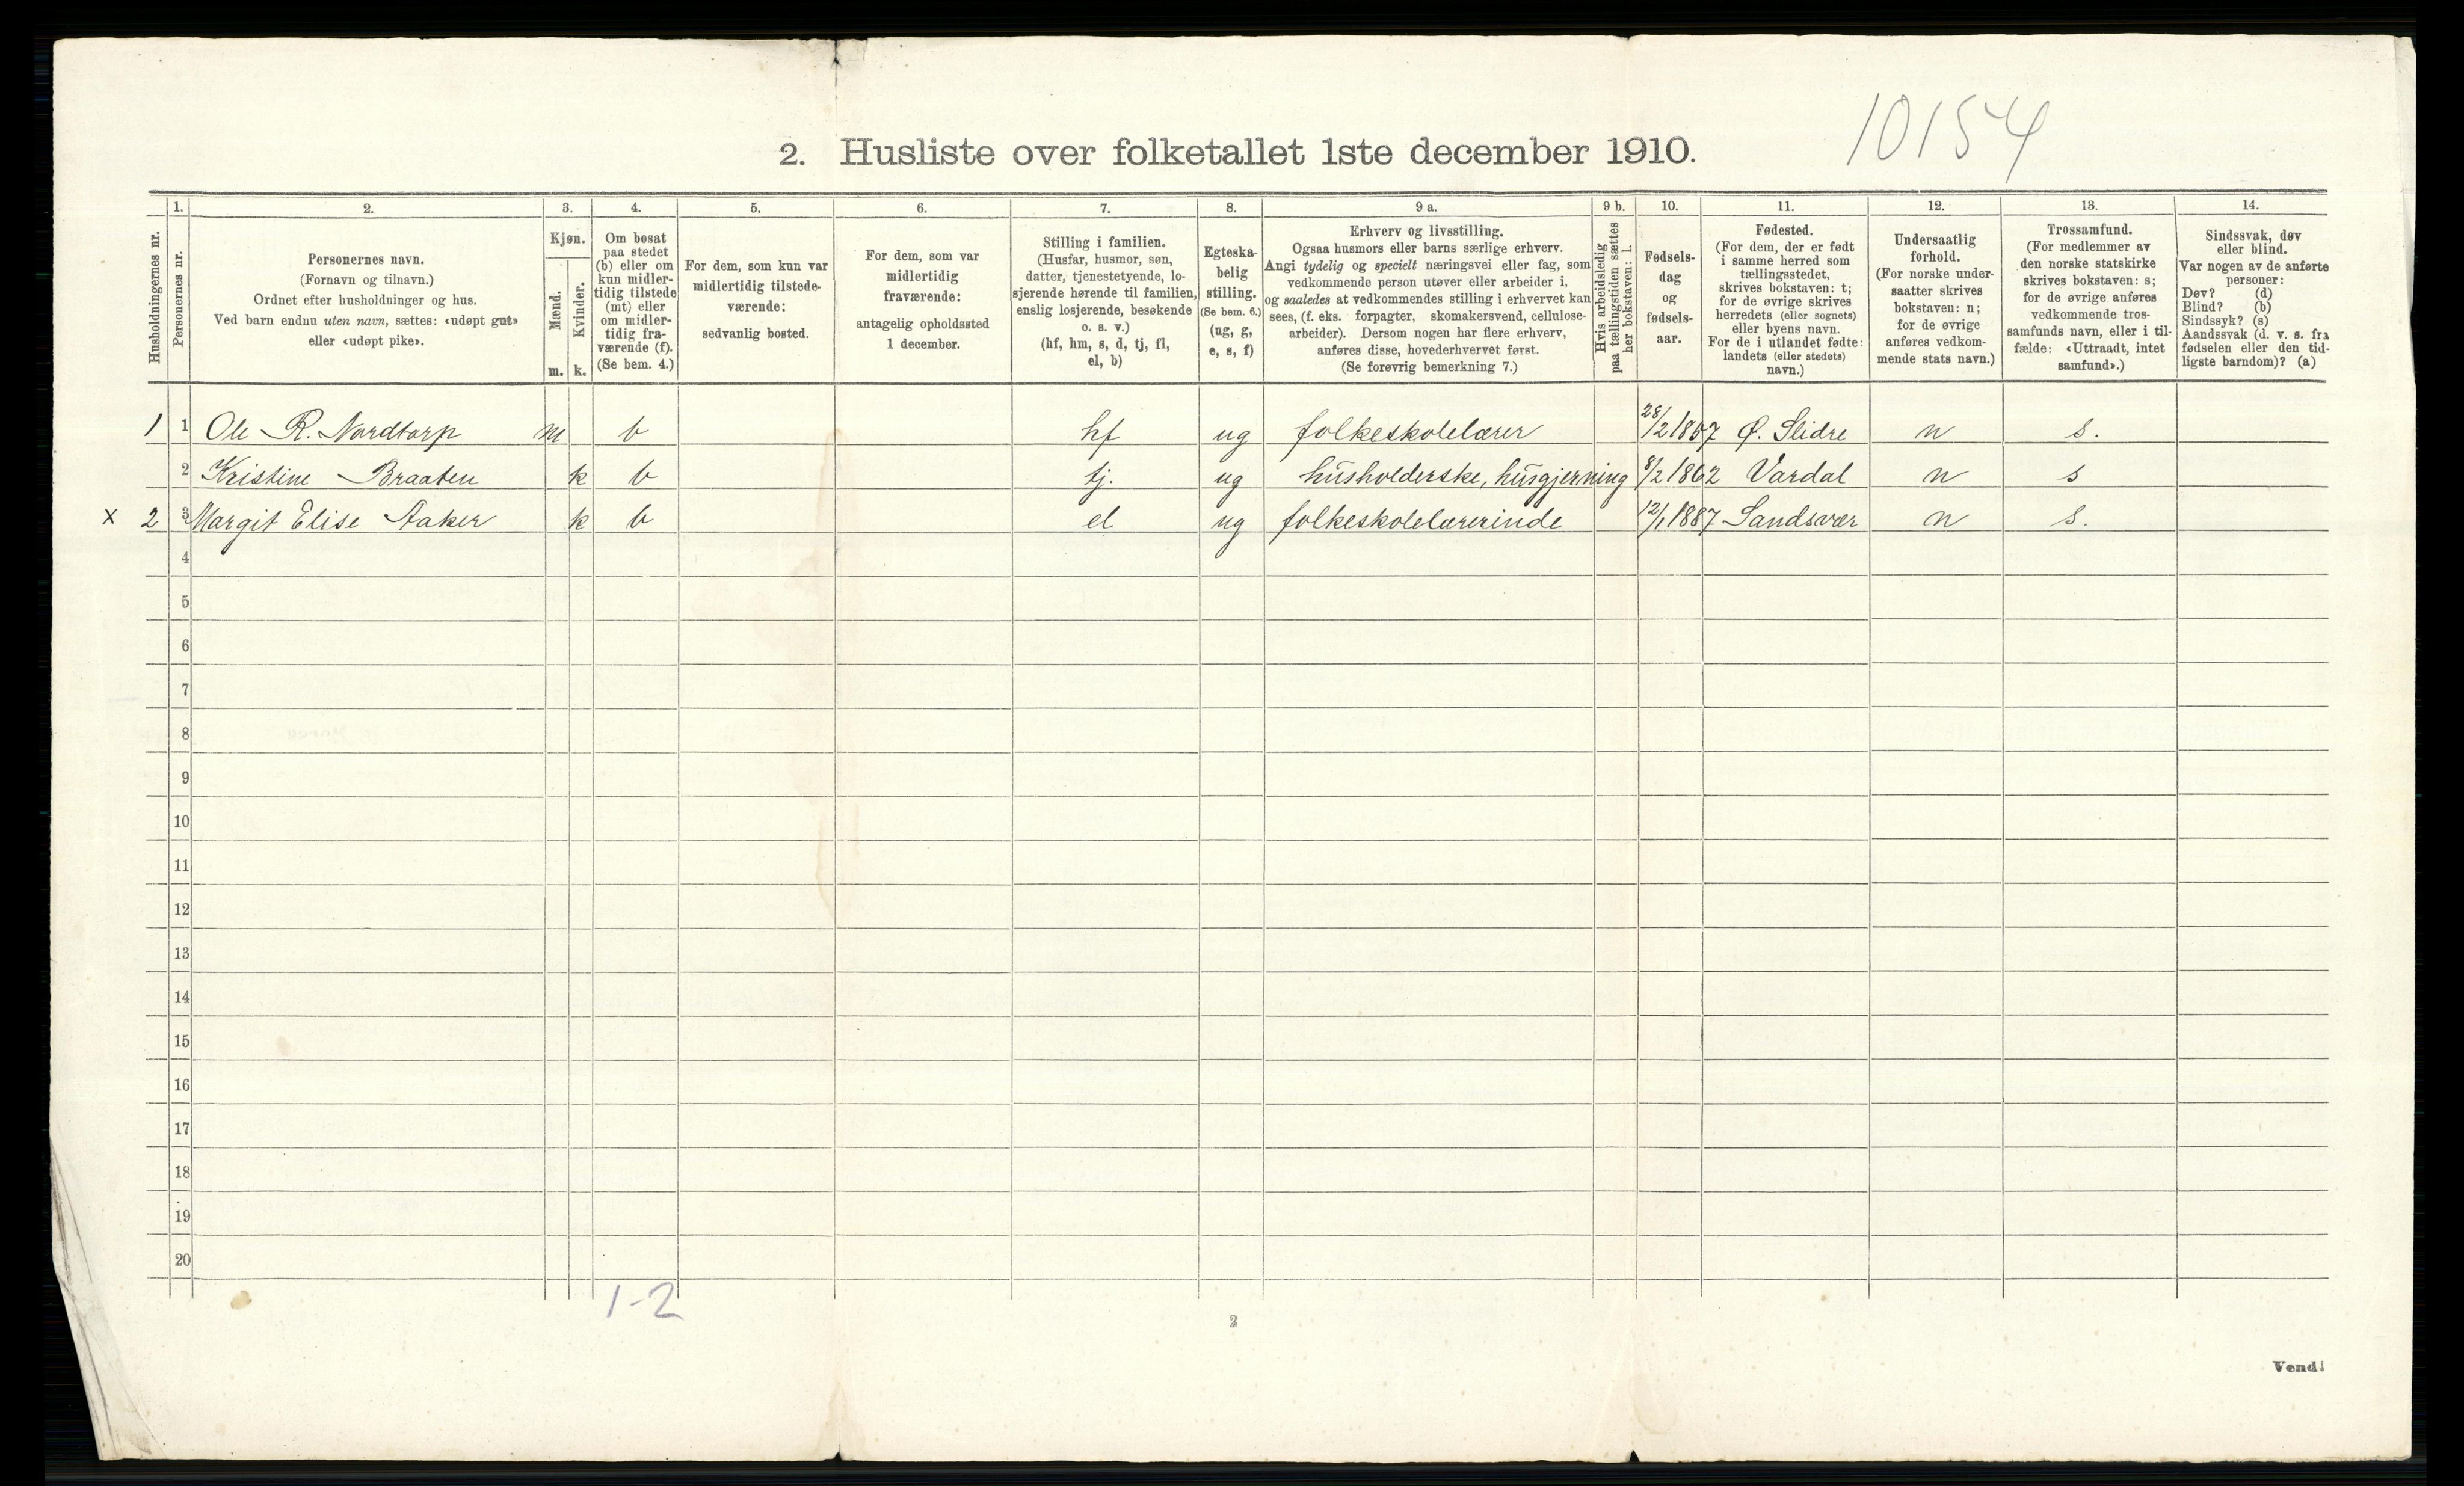 10154
2. Husliste over folketallet 1ste december 1910.
1. 2. 3. 4. 5. 6. 7. 8. 9 a. 9 b. 10. 11. 12. 13. 14.
Husholdningernes nr.
Personernes nr.
Personernes navn.
(Fornavn og tilnavn.)
Ordnet efter husholdninger og hus.
Ved barn endnu uten navn, sættes: «udøpt gut»
eller «udøpt pike».
Kjøn.
Mænd.
Kvinder.
m. k.
Om bosat
paa stedet
(b) eller om
kun midler-
tidig tilstede
(mt) eller
om midler-
tidig fra-
værende (f).
(Se bem. 4.)
For dem, som kun var
midlertidig tilstede-
værende:
sedvanlig bosted.
For dem, som var
midlertidig
fraværende:
antagelig opholdssted
1 december.
Stilling i familien.
(Husfar, husmor, søn,
datter, tjenestetyende, lo-
sjerende hørende til familien,
enslig losjerende, besøkende
o. s. v.)
(hf, hm, s, d, tj, fl,
el, b)
Egteska-
belig
stilling.
(Se bem. 6.)
(ug, g,
e, s, f)
Erhverv og livsstilling.
Ogsaa husmors eller barns særlige erhverv.
Angi tydelig og specielt næringsvei eller fag, som
vedkommende person utøver eller arbeider i,
og saaledes at vedkommendes stilling i erhvervet kan
sees, (f. eks. forpagter, skomakersvend, cellulose-
arbeider). Dersom nogen har flere erhverv,
anføres disse, hovederhvervet først.
(Se forøvrig bemerkning 7.)
Hvis arbeidsledig
paa tællingstiden sættes
her bokstaven: l.
Fødsels-
dag
og
fødsels-
aar.
Fødested.
(For dem, der er født
i samme herred som
tællingsstedet,
skrives bokstaven: t;
for de øvrige skrives
herredets (eller sognets)
eller byens navn.
For de i utlandet fødte:
landets (eller stedets)
navn.)
Undersaatlig
forhold.
(For norske under-
saatter skrives
bokstaven: n;
for de øvrige
anføres vedkom-
mende stats navn.)
Trossamfund.
(For medlemmer av
den norske statskirke
skrives bokstaven: s;
for de øvrige anføres
vedkommende tros-
samfunds navn, eller i til-
fælde: «Uttraadt, intet
samfund».)
Sindssvak, døv
eller blind.
Var nogen av de anførte
personer:
Døv? (d)
Blind? (b)
Sindssyk? (s)
Aandssvak (d. v. s. fra
fødselen eller den tid-
ligste barndom)? (a)
1 1 Ole R. Nordtorp m b hf ug folkeskolelærer 28/2 1857 Ø. Slidre n s.
2 Kristine Braaten k b tj. ug husholderske, husgjerning 8/2 1862 Vardal n s
x 2 3 Margit Elise Aaker k b el ug folkeskolelærerinde 12/1 1887 Sandsvær n s.
4
5
6
7
8
9
10
11
12
13
14
15
16
17
18
19
20
1-2
2
Vend!